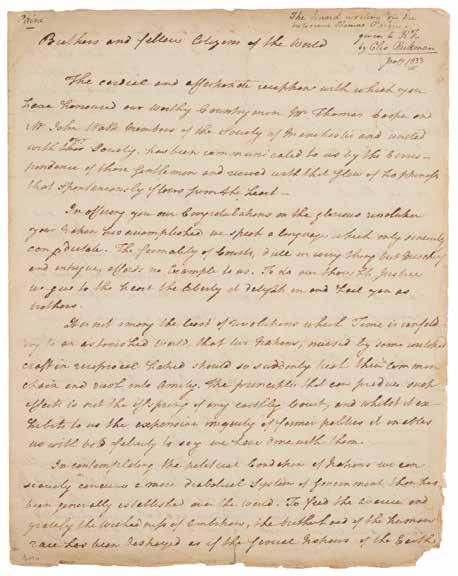 Paine
The Hand writing of the
infamous Thomas Paine,
given to R.G.
by Clio Rickman
Jany 1833
Brothers and fellow Citizens of the World
The cordial and affectionate reception with which you
have honoured our worthy Countrymen Mr Thomas Cooper and
Mr John Watt Members of the Society of Manchester and united
with our Society, has been communicated to us by the Corres-
pondence of those Gentlemen and received with that Glow of happiness
that spontaneously flows from the heart —
In offering you our Congratulations on the glorious revolution
your Nation has accomplished we speak a language which only sincerity
can dictate. The formality of Courts, dull in every thing but Mischief
and intrigue, affords no Example to us. To do our thoughts Justice
we give to the heart the liberty it delights in and hail you as
brothers.
It is not among the least of revolutions which Time is unfold
ing to an astonished world, that two Nations, nursed by some wretched
craft in reciprocal hatred should so suddenly break their common
chain and rush into Amity. The principle that can produce such
effects is not the offspring of any earthly Court, and whilst it ex-
hibits to us the expensive iniquity of former politics it enables
us with bold felicity to say we have done with them.
In contemplating the political Condition of Nations we can
scarcely conceive a more diabolical System of Government than has
been generally established over the world. To feed the avarice and
gratify the wickedness of Ambition, the brotherhood of the human
race has been destroyed as if the several Nations of the Earth